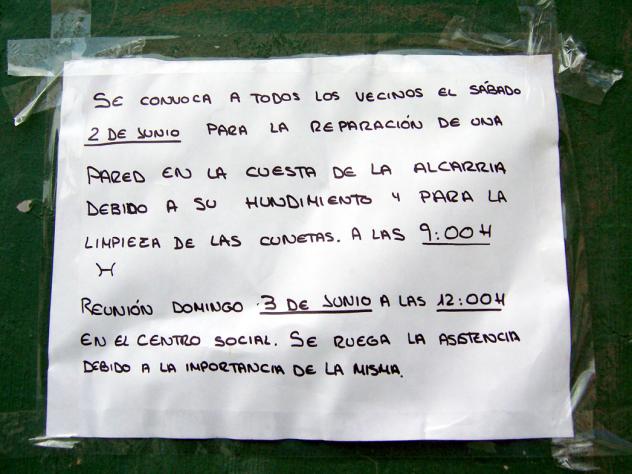 SE CONVOCA A TODOS LOS VECINOS EL SÁBADO
2 DE JUNIO PARA LA REPARACIÓN DE UNA
PARED EN LA CUESTA DE LA ALCARRIA
DEBIDO A SU HUNDIMIENTO Y PARA LA
LIMPIEZA DE LAS CUNETAS. A LAS 9:00H
H
REUNIÓN DOMINGO 3 DE JUNIO A LAS 12:00H
EN EL CENTRO SOCIAL. SE RUEGA LA ASISTENCIA
DEBIDO A LA IMPORTANCIA DE LA MISMA.